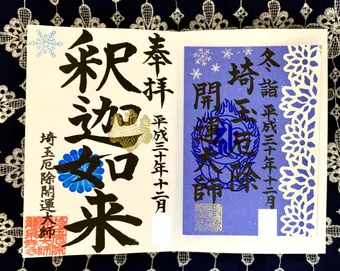 冬詣
平成三十年十二月
埼玉厄除
開運大師
奉拝
平成三十年十二月
釈迦如来
埼玉厄除開運大師